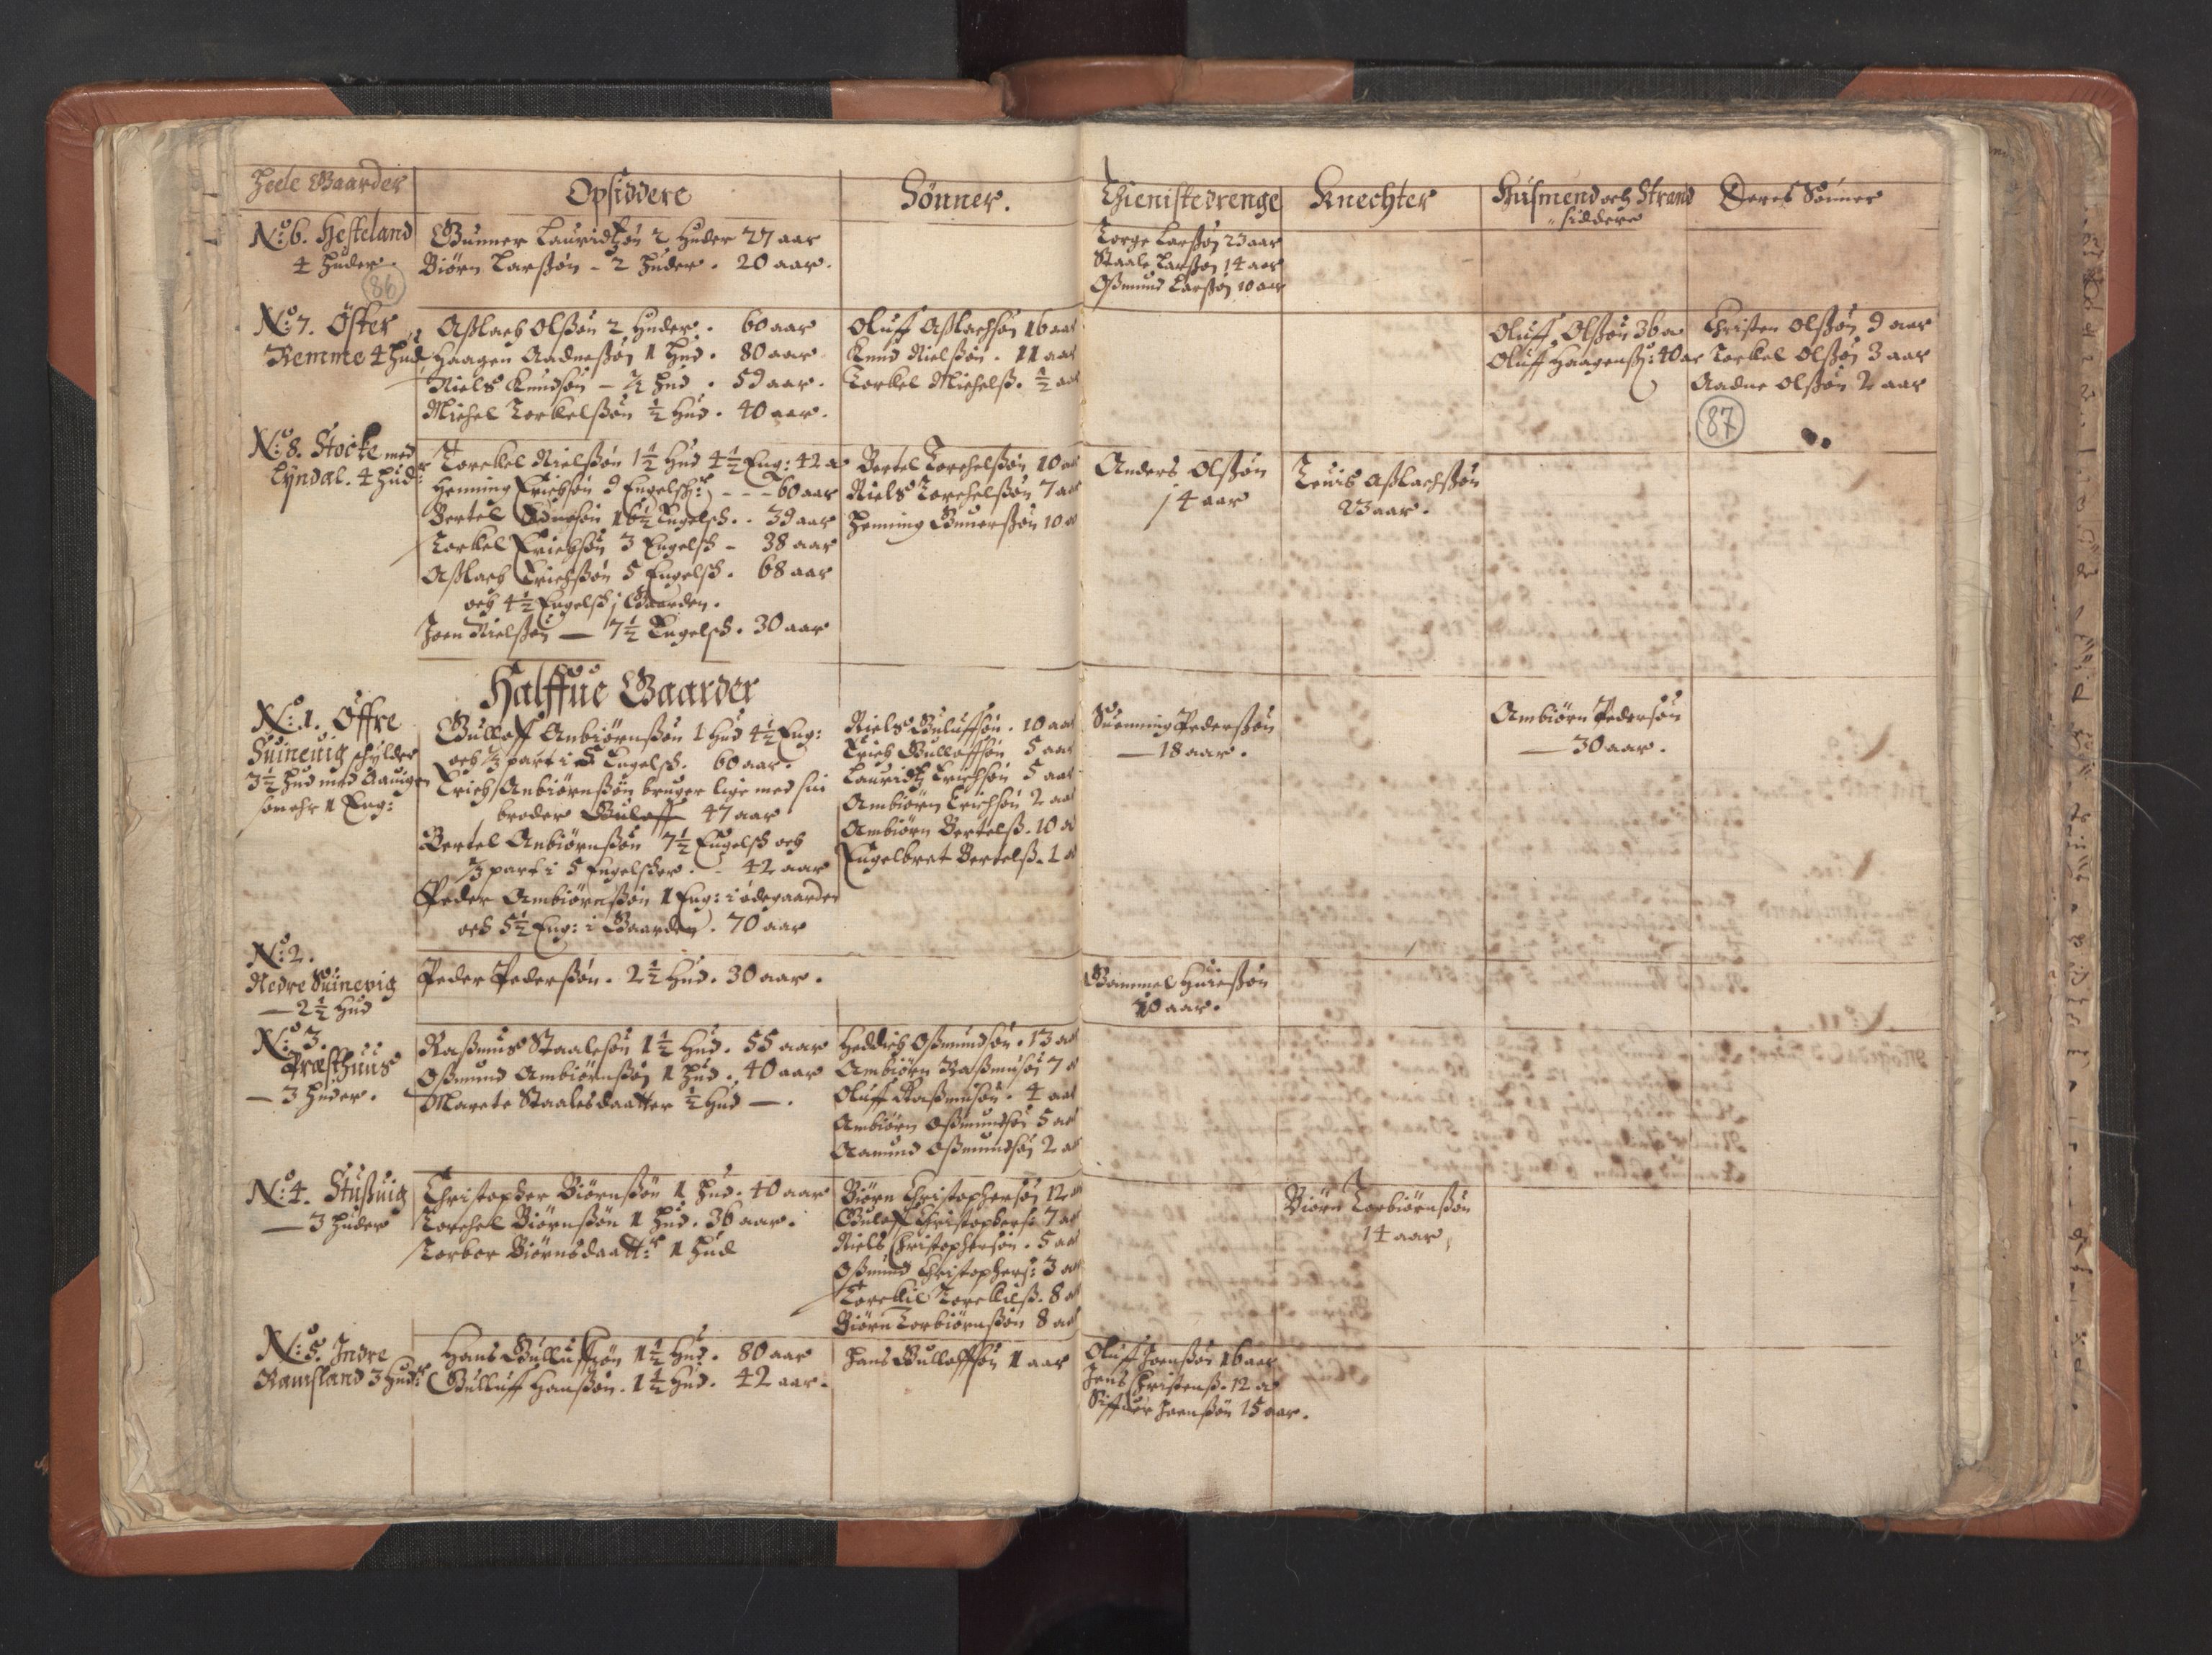 Heele Gaarder
Opsiddere
Sønner.
Thienistedrenge
Knechter
Husmend och Strand
siddere
Deres Sønner
No: 6. Hesteland
4 Huder.
86
Gunner Lauridtzøn 2 Huder 27 aar
Biørn Larssøn - 2 Huder. 20 aar.
Torge Larssøn 23 aar
Staale Larssøn 14 aar
Ossmund Larssøn 10 aar
No: 7. Öster
Remme 4 Hud
Asslach Olssøn 2 Huder. 60 aar
Haagen Aadnessøn 1 Hud. 80 aar
Niels Knudsøn - ½ Hud. 59 aar.
Michel Torkelssøn ½ Hud. 40 aar.
Oluff Asslachsøn 16 aar
Knud Nielssøn. 11 aar
Torkel Michelss. ½ aar
Oluff Olssøn 36 a
Oluff Haagenss: 40 ar
Christen Olssøn 9 aar
Torkel Olssøn 3 aar
Aadne Olssøn 2 aar
87
No: 8. Stocke med
Lyndal. 4 Hudr:
Torckel Nielssøn 1½ Hud 4½ Eng: 42 a
Henning Erichsøn 9 Engelschr: - - - 60 aar
Bertel 16½ Engelsch. . 39 aar
Torkel Erichsøn 3 Engelsch - 38 aar
Asslach Erichssøn 5 Engelsch. 68 aar
och 4½ Engelsch i Gaarden.
Joen Nielssøn — 7½ Engelsch. 30 aar
Bertel Torchelssøn 10 aar
Niels Torchelssøn 7 aar
Henning Gunerssøn 10 a
Anders Olssøn
14 aar
Teuis Asslachssøn
23 aar.
Halffue Gaarder
No: 1. Öffre
Suineuig schylder
3½ Hud med
som ehr 1 Eng:
Gulloff Anbiørnssøn 1 Hud 4½ Eng:
och ⅓ part i 5 Engelsch. 60 aar.
Erich Anbiørnssøn bruger lige med sin
broder Guloff 47 aar
Bertel Anbiørnssøn 7½ Engelsch och
⅓ part i 5 Engelscher. - 42 aar
Peder Ambiørnssøn 1 Eng: i ødegaarden
och 5½ Eng: i Gaarden. 70 aar
Niels Guluffsøn. 10 aar
Erich Gulloffsøn 5 aar
Lauridtz Erichsøn 5 aar
Ambiørn Erichsøn 2 aar
Ambiørn Bertelss. 10 a
Engelbret Bertelss. 1 a
Suenning Pederssøn
— 18 aar.
Ambiørn Pedersøn
— 30 aar.
No: 2.
Nedre Suinevig
— 2½ Hud
Peder Pederssøn. 2½ Hud. 30 aar.
Gammel
aar.
No: 3.
Præsthuus
— 3 Huder.
Rassmus Staalesøn 1½ Hud. 55 aar
Ossmund Ambiørnssøn 1 Hud. 40 aar
Marete Staalesdaatter ½ Hud —.
Heddich Ossmundsøn. 13 a
Ambiørn Rassmusøn 7 a
Oluff Rassmusøn. 4 aar
Ambiørn Ossmundsøn 5 aar
Aamund Ossmundsøn 2 aar
No: 4. Stussuig
— 3 Huder
Christopher Biørnssøn 1 Hud. 40 aar
Torchel Biørnssøn 1 Hud. 36 aar.
Torbor Biørnsdaattr: 1 Hud
Biørn Christophersøn 12 a
Guloff Christophers: 7 aar
Niels Christophersøn. 5 aar
Ossmund Christophers: 3 aar
Torckil Torckilss. 8 a
Biørn Torbiørnssøn 8 aar
Biørn Torbiørnssøn
14 aar
No: 5. Indre
Ramsland 3 Hudr:
Hans Gulluffsøn 1½ Hud. 80 aar
Gulluff Hanssøn. 1½ Hud. 42 aar.
Hans Gulloffsøn 1 aar
Oluff Joenssøn 16 aar
Jens Christenss. 12 a
Siffuer Joenssøn 15 aar.